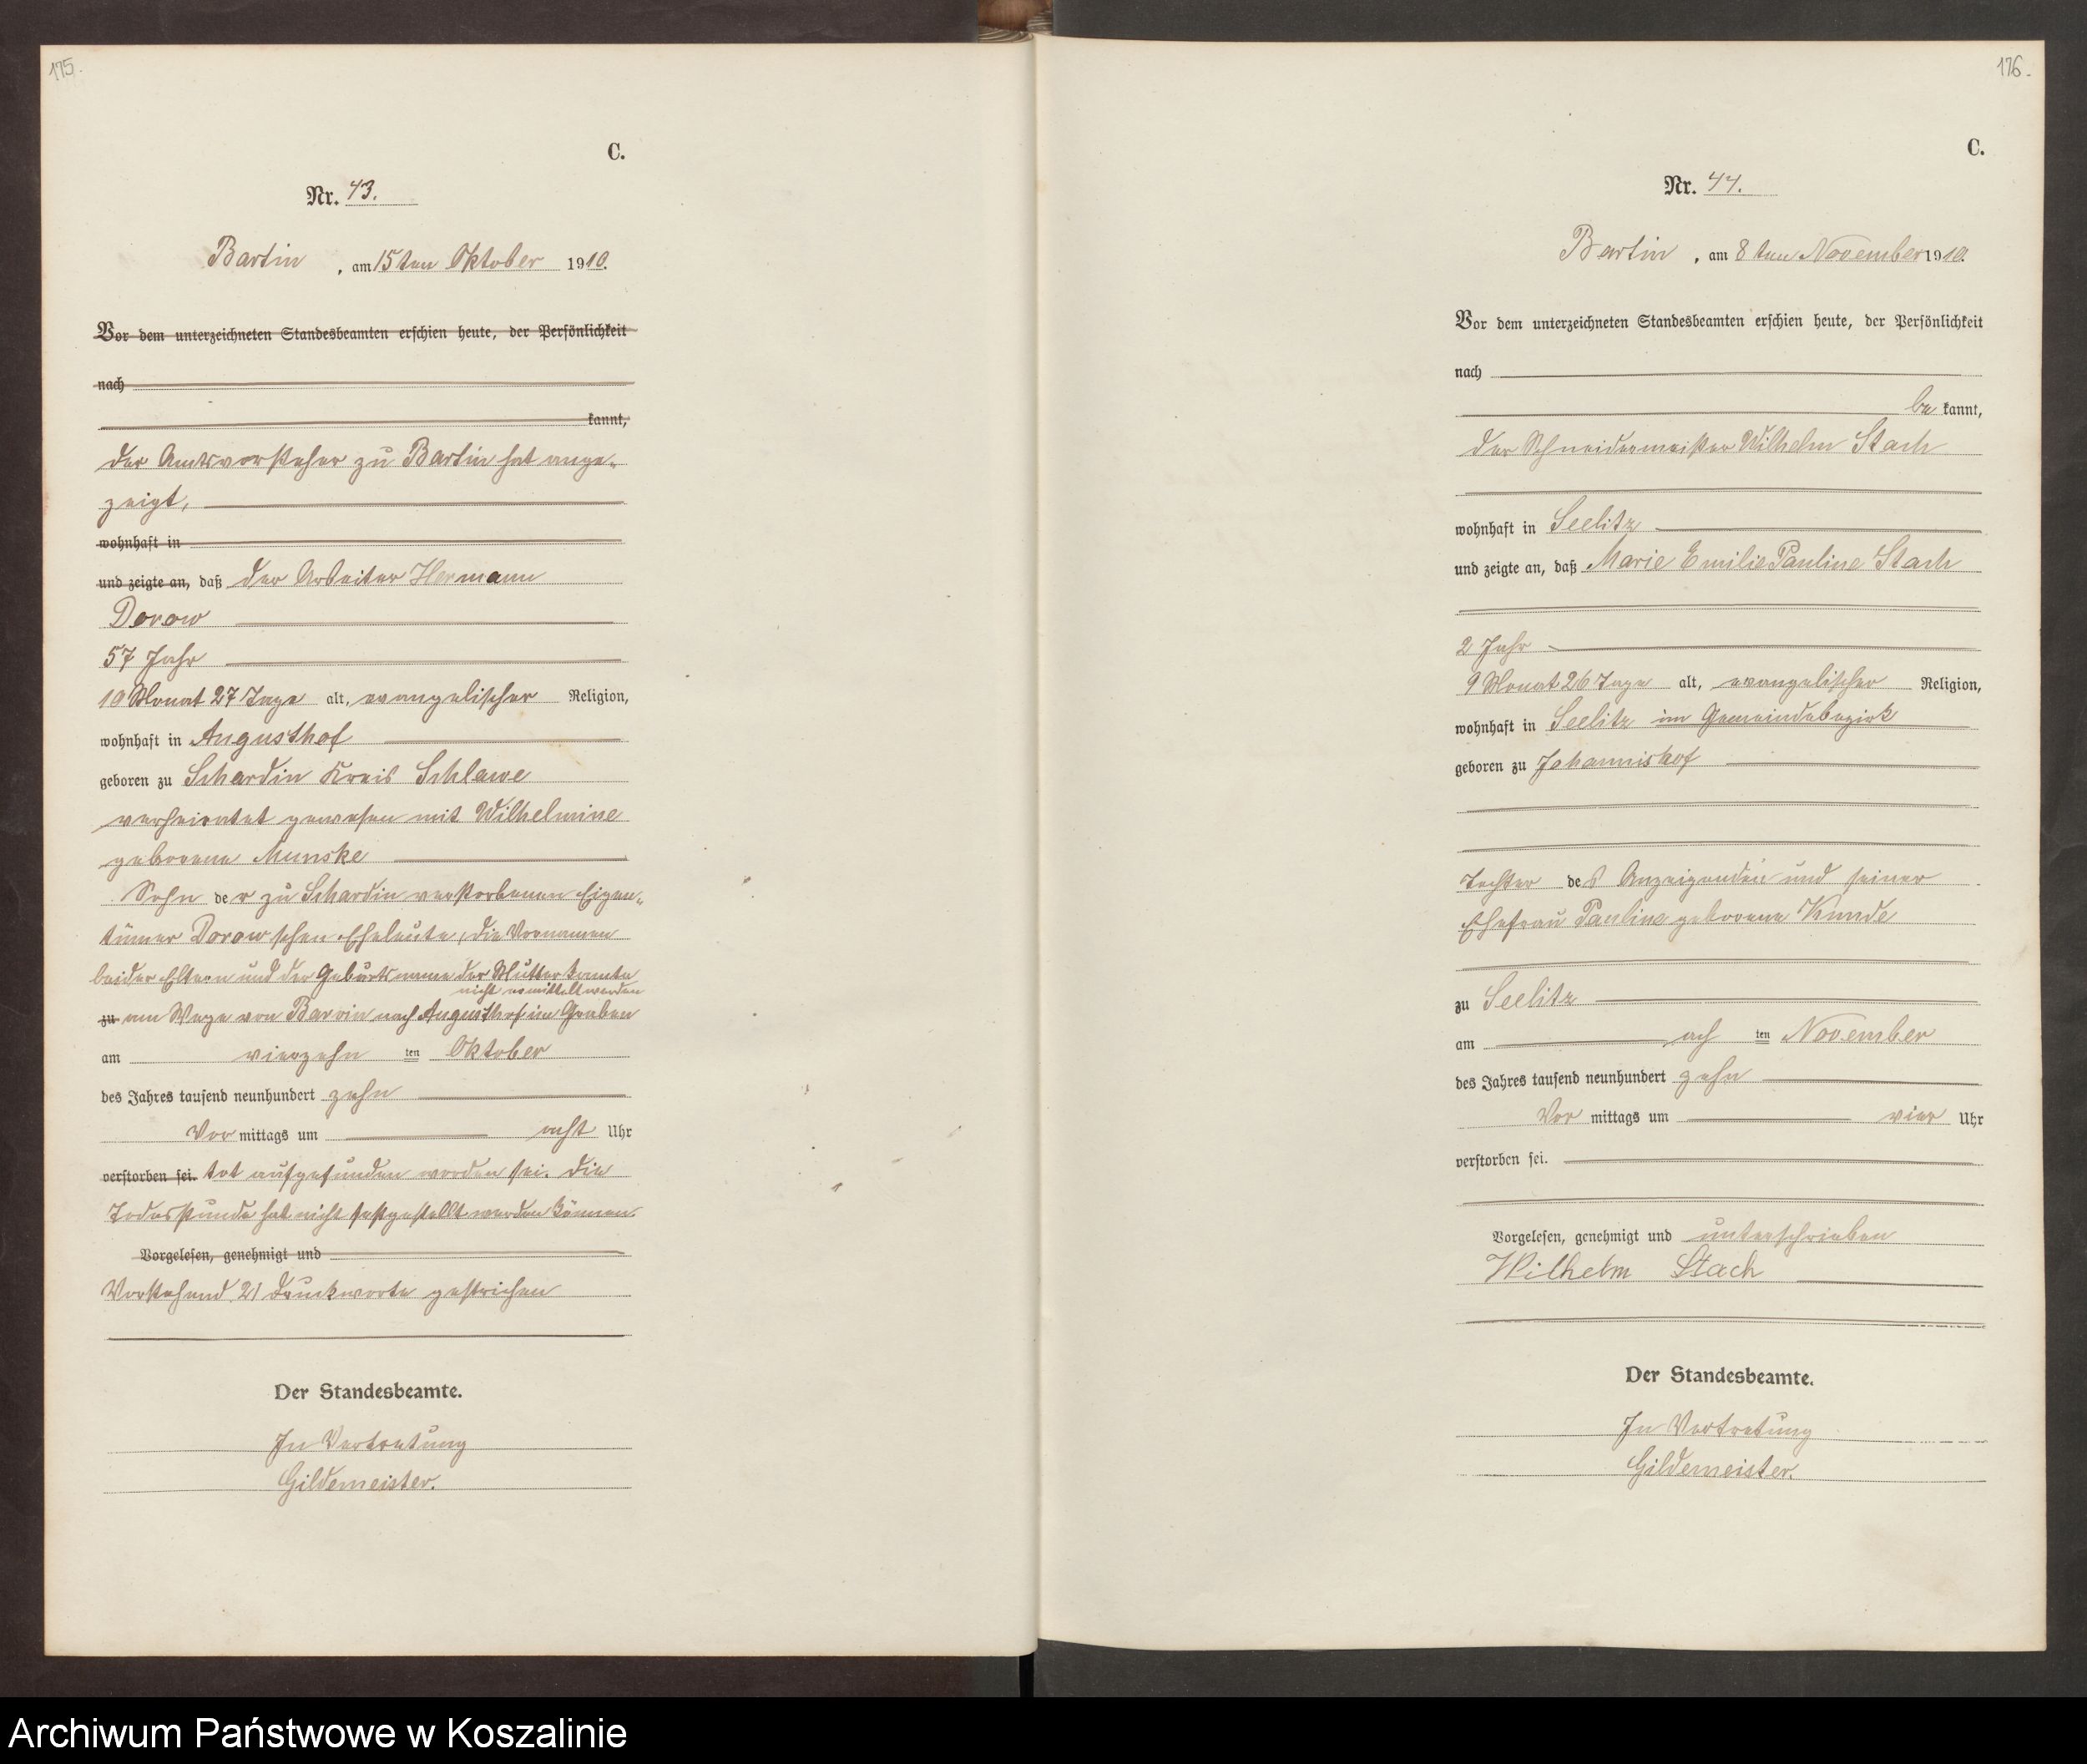 175.
C.
Nr. 43.
Bartin, am 15ten Oktober 1910.
Vor dem unterzeichneten Standesbeamten erschien heute, der Persönlichkeit
nach
kannt,
der Amtsvorsteher zu Bartin hat ange-
zeigt,
wohnhaft in
und zeigte an, daß der Arbeiter Hermann
Dorow
57 Jahr
10 Monat 27 Tage alt, evangelischer Religion,
wohnhaft in Augusthof
geboren zu Schardin Kreis Schlawe
verheiratet gewesen mit Wilhelmine
geborene Munske
Sohn der zu Schardin verstorbenen Eigen-
tümer Dorow'schen Eheleute, die Vornamen
beider Eltern und der Geburtsname der Mutter konnte
nicht ermittelt werden
zu am Wege von Barvin nach Augusthof im Graben
am vierzehn ten Oktober
des Jahres tausend neunhundert zehn
Vor mittags um acht Uhr
verstorben sei. tot aufgefunden worden sei. Die
Todesstunde hat nicht festgestellt werden können.
Vorgelesen, genehmigt und
Vorstehend 21 Druckworte gestrichen
Der Standesbeamte.
In Vertretung
Gildemeister.
176.
C.
Nr. 44.
Bartin, am 8ten November 1910.
Vor dem unterzeichneten Standesbeamten erschien heute, der Persönlichkeit
nach
be kannt,
der Schneidermeister Wilhelm Stach
wohnhaft in Seelitz
und zeigte an, daß Marie Emilie Pauline Stach
2 Jahr
9 Monat 26 Tage alt, evangelischer Religion,
wohnhaft in Seelitz im Gemeindebezirk
geboren zu Johannishof
Tochter des Anzeigenden und seiner
Ehefrau Pauline geborene Kunde
zu Seelitz
am ach ten November
des Jahres tausend neunhundert zehn
Vor mittags um vier Uhr
verstorben sei.
Vorgelesen, genehmigt und unterschrieben
Wilhelm Stach
Der Standesbeamte.
In Vertretung
Gildemeister.
Archiwum Państwowe w Koszalinie